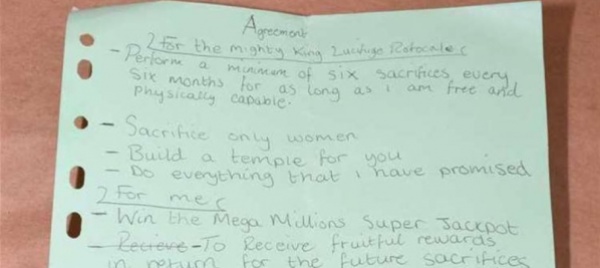 Agreement
For the mighty King Lucifuge Rofocale
- Perform a minimum of six sacrifices every
six months for as long as i am free and
physically capable.
- Sacrifice only women
- Build a temple for you
- Do everything that i have promised
For me
- Win the Mega Millions Super Jackpot
- Recieve To Receive fruitful rewards
in return for the future sacrifices